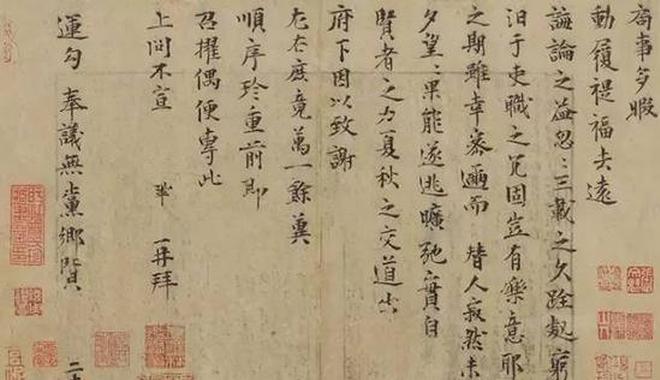 局事多暇
動履禔福去遠
誨論之益忽〻三載之久跧處窮
汩于吏職之冗固豈有樂意耶
之期雖幸密邇而替人寂然未
夕望〻果能遂逃曠弛實自
賢者之力夏秋之交道出
府下因以致謝
左右庶竟萬一餘冀
順序珍重前即
召擢偶便專此
上問不宣 鞏 再拜
運勾 奉議無黨鄉賢 二十